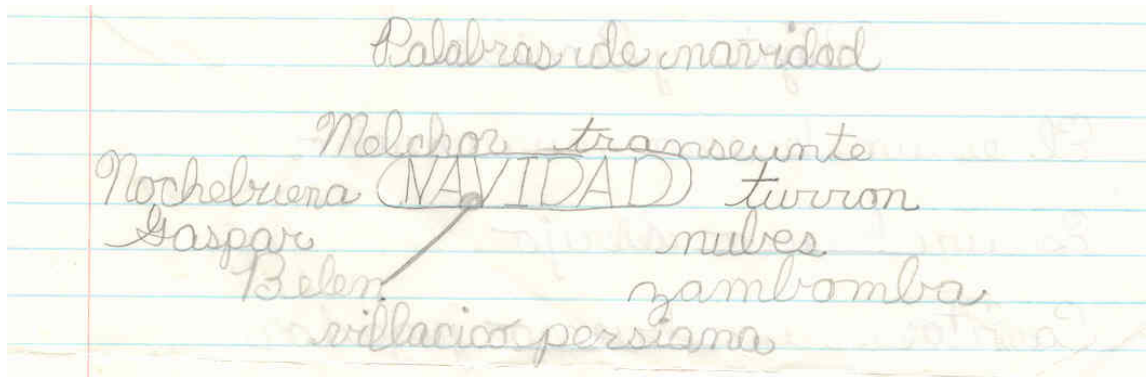 Palabras de navidad
Melchor transeunte
Nochebuena NAVIDAD turron
Gaspar nubes
Belen zambomba
persiana